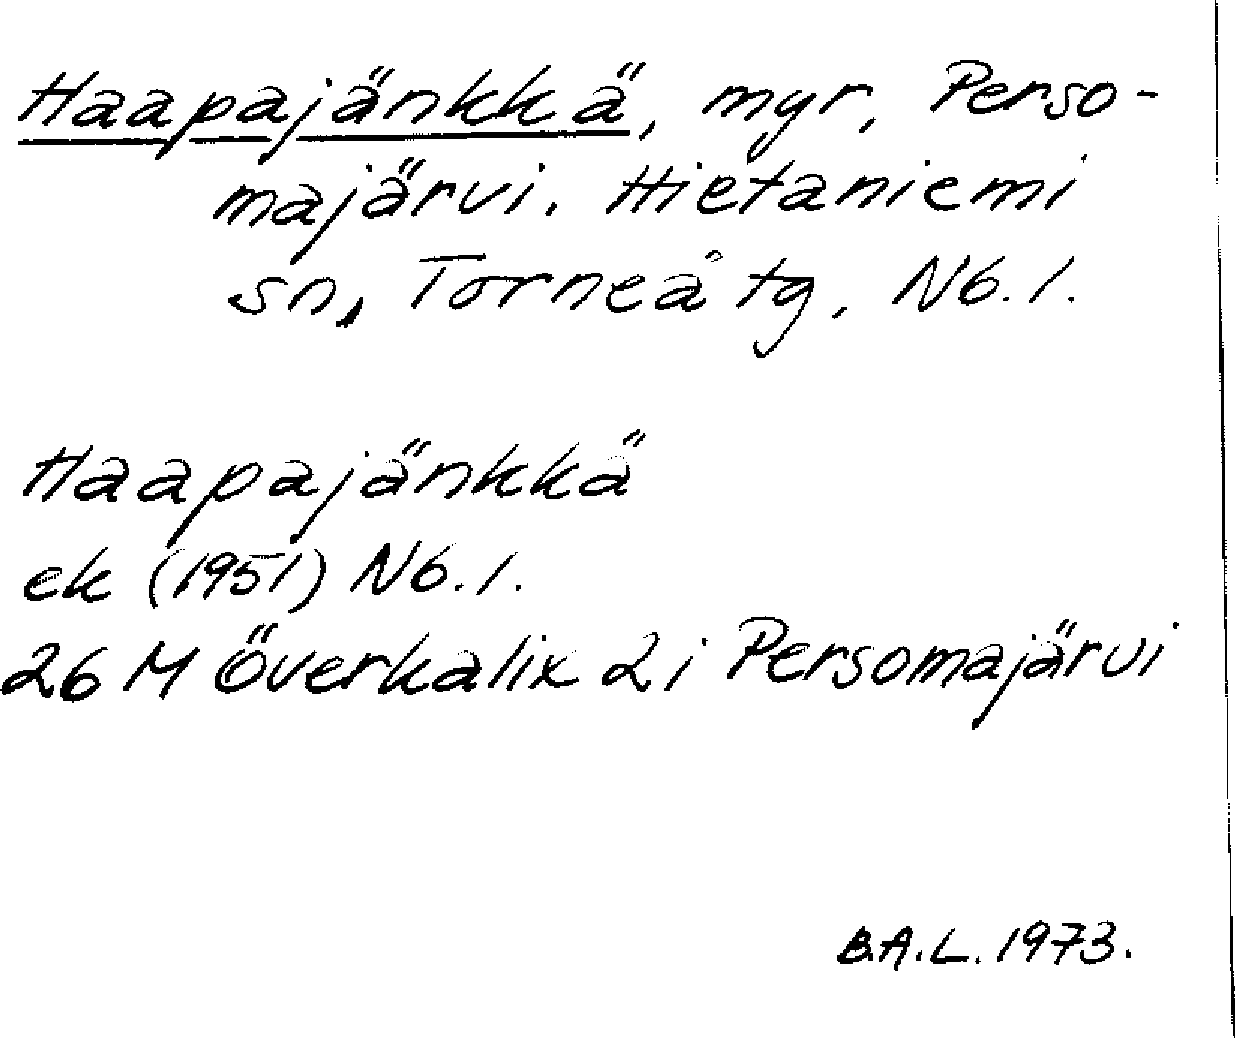 Haapajänkkä, myr, Perso-
majärvi. Hietaniemi
sn, Torneå tg, Nb. l.
Haapajänkkä
ek (1951) Nb. l.
26 M Överkalix 2 i Persomajärvi
B.A.L. 1973.